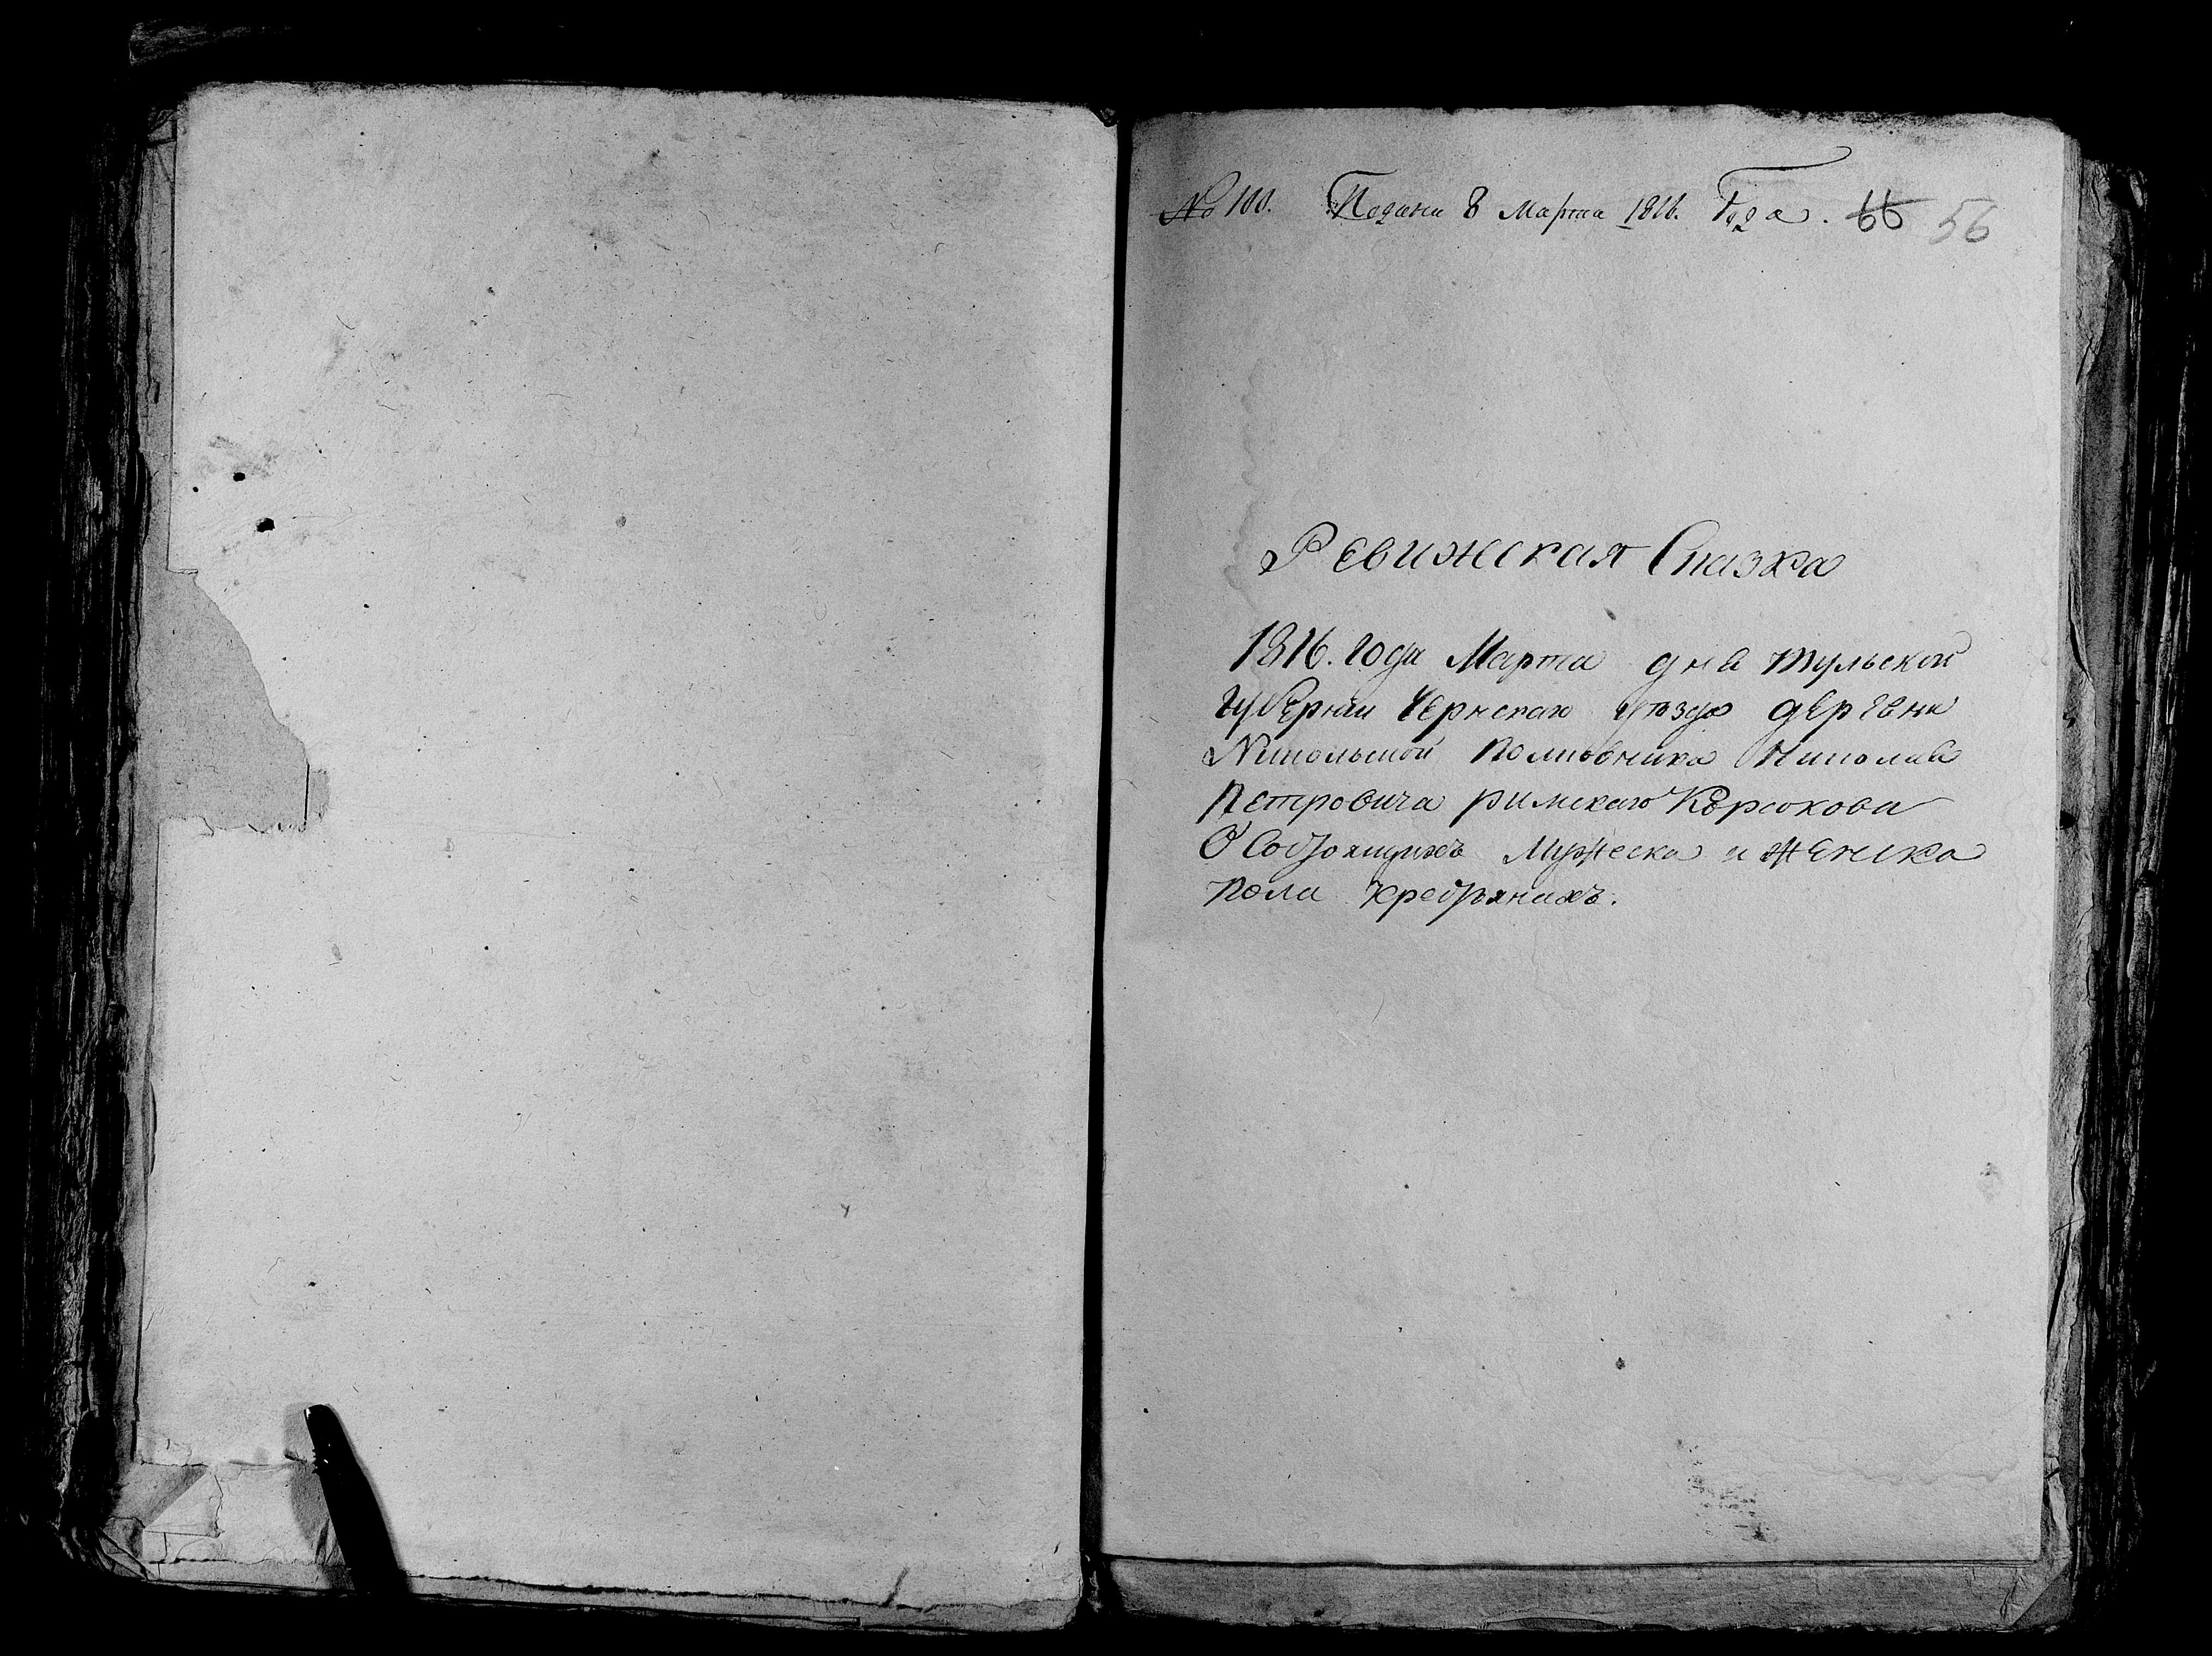 № 100. Подана 8 Марта 1816. Года. 66 56
Ревижская Сказка
1816. года Марта дня тульской
губернии Чернскаго уѣзда деревни
Никольской Полковника Николая
Петровича римскаго Корсокова
О Состоящихъ Мужеска и женска
пола крестьянахъ.